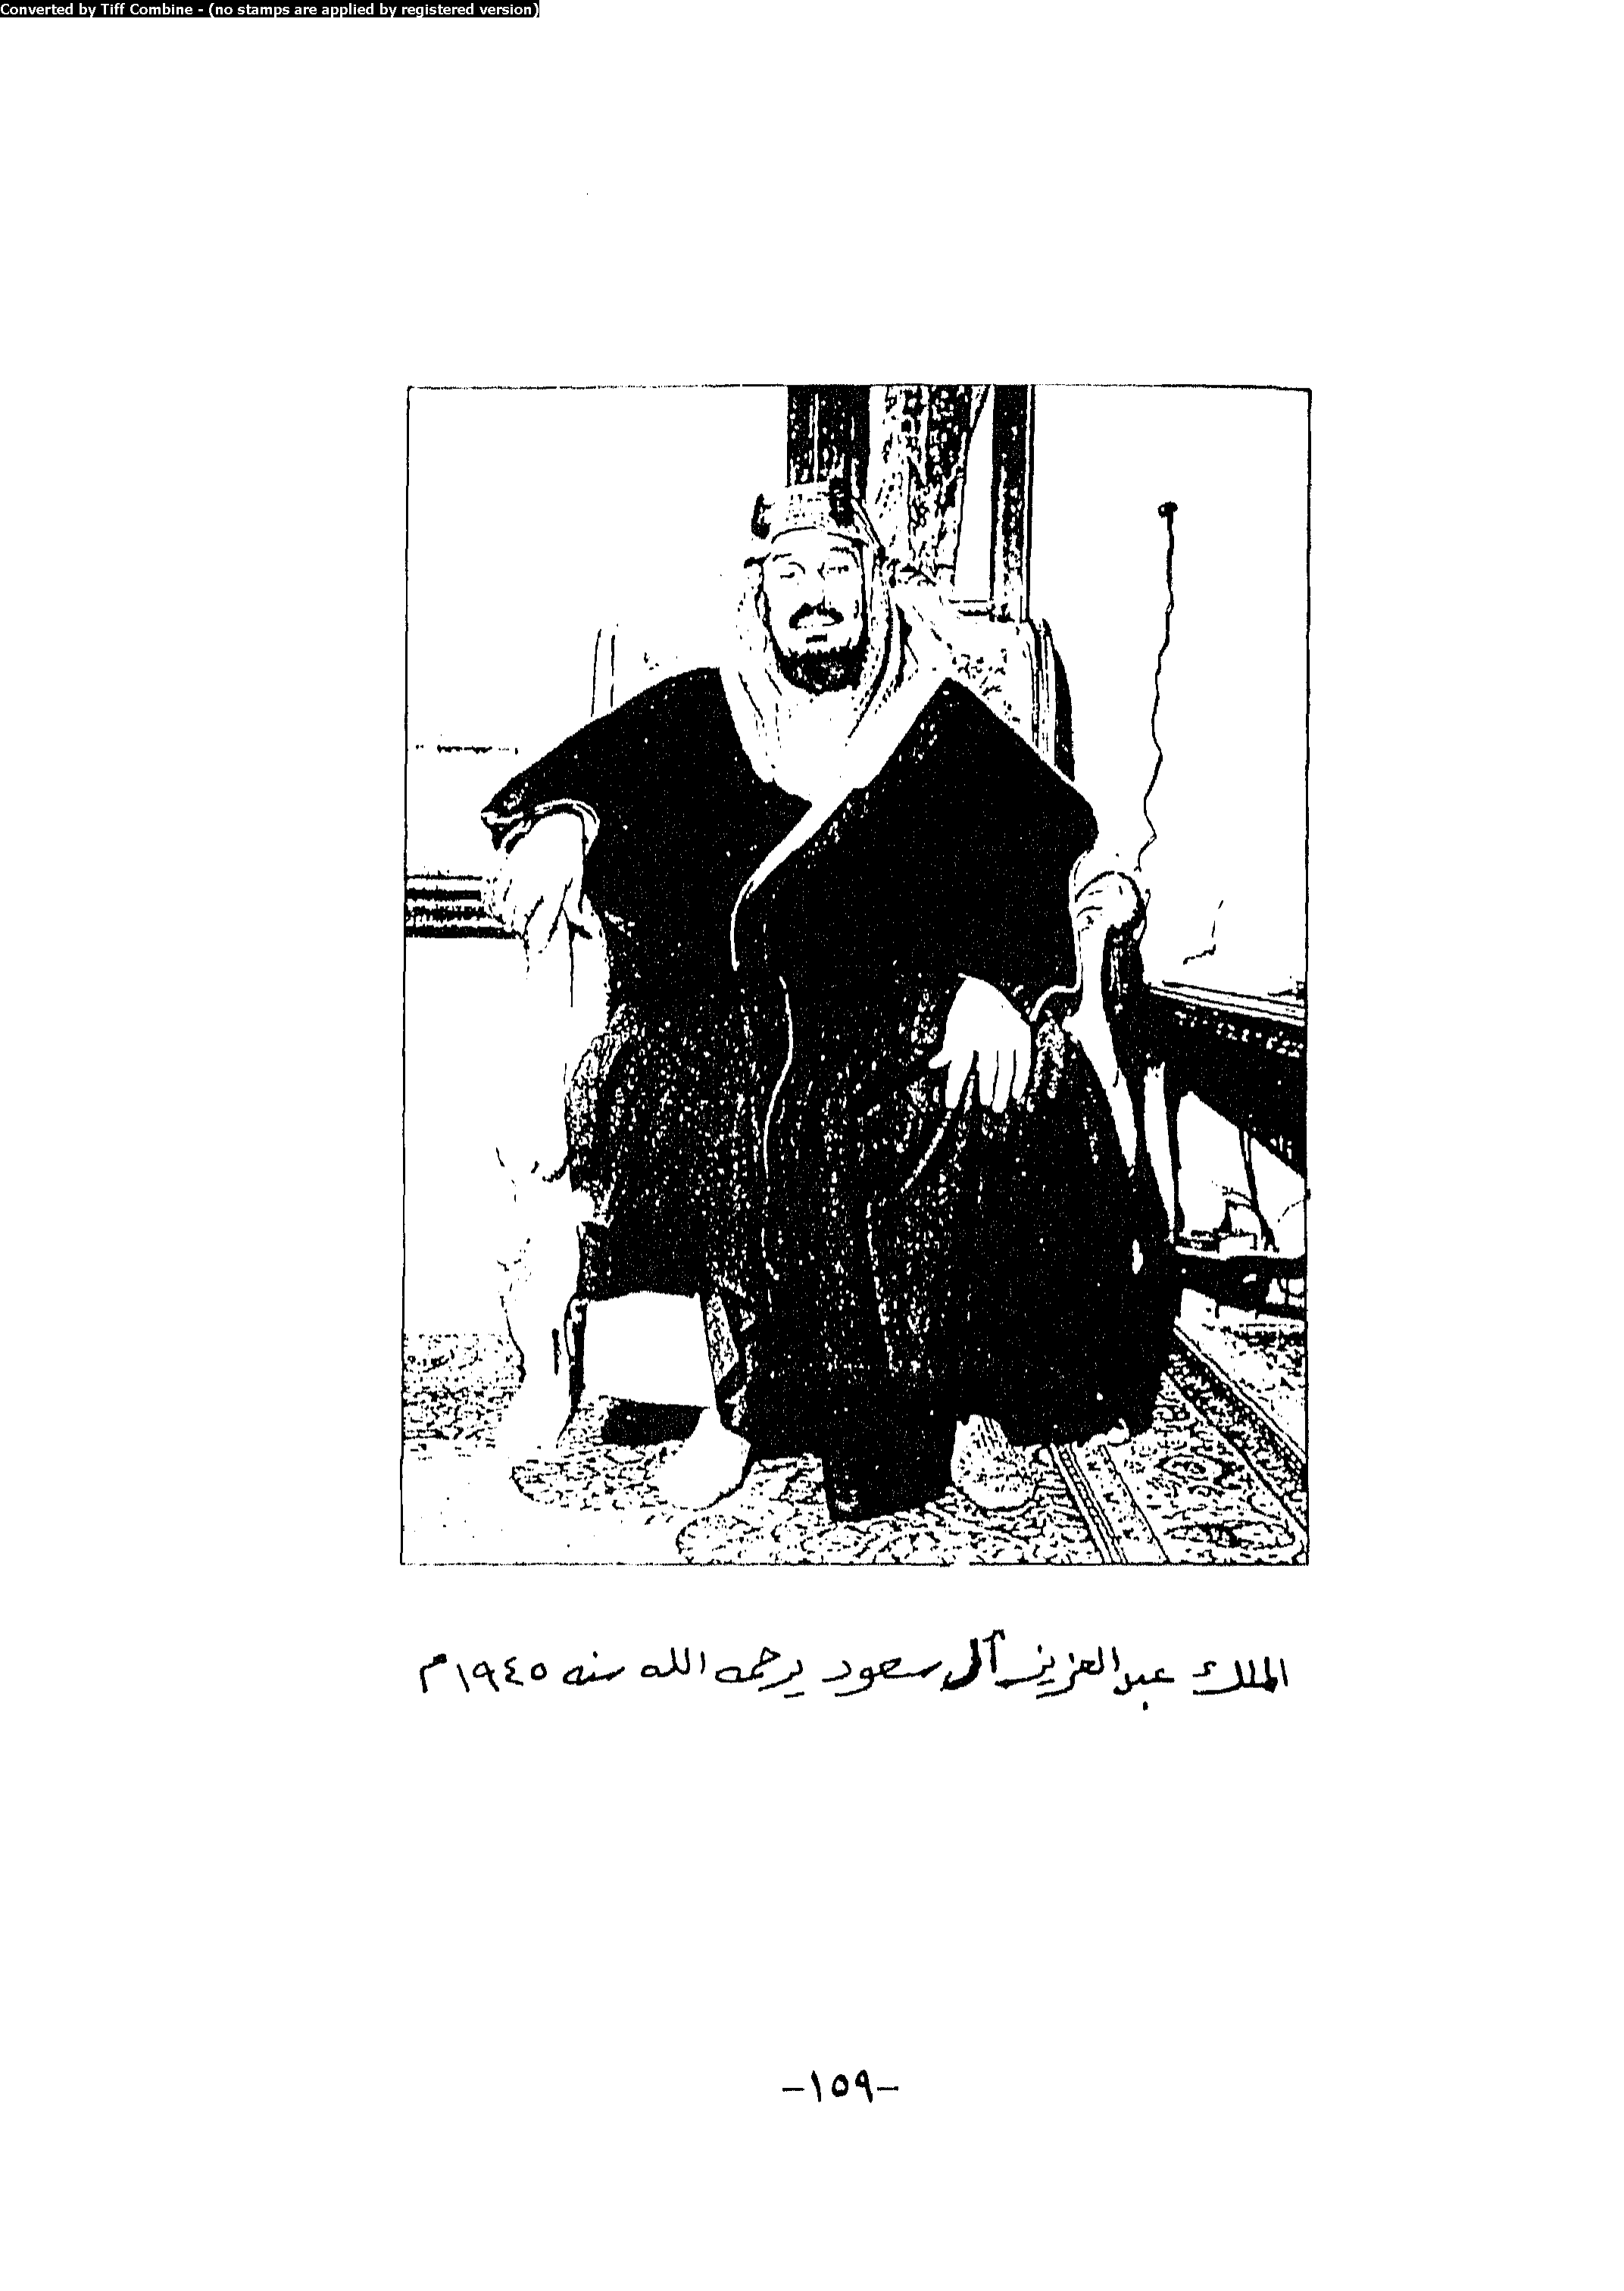 Converted by Tiff Combine - (no stamps are applied by registered version)
الملك عبدالعزيز آل سعود يرحمه الله سنه ١٩٤٥م
-١٥٩-